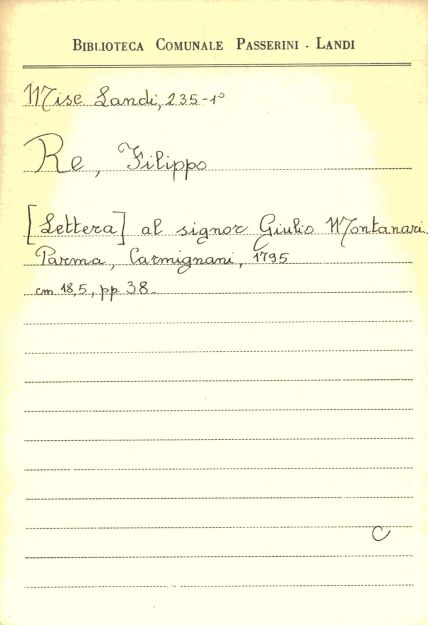 BIBLIOTECA COMUNALE PASSERINI - LANDI
Misc Landi, 235-1°
Re, Filippo
[Lettera] al signor Giulio Montanari.
Parma, Carmignani, 1795
cm 18,5, pp 38.
C